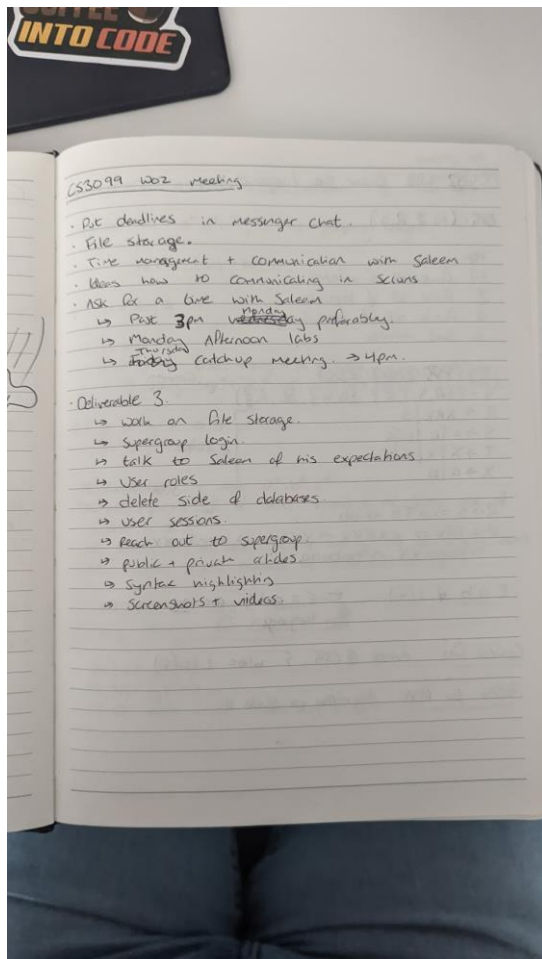 COFFEE
INTO CODE
CS3099 W02 Meeting
· Put deadlines in messenger chat.
· File storage.
· Time management + communication with Saleem
· Ideas how to communicating in Scrums
· Ask for a time with Saleem
↳ Past 3pm Monday preferably.
↳ Monday Afternoon labs
↳ Thursday catchup meeting. → 4pm.
· Deliverable 3.
↳ work on file storage.
↳ supergroup login.
↳ talk to Saleem of his expectations
↳ user roles
↳ delete side of databases
↳ user sessions.
↳ Reach out to supergroup.
↳ public + private articles
↳ Syntax highlighting
↳ screenshots + videos.